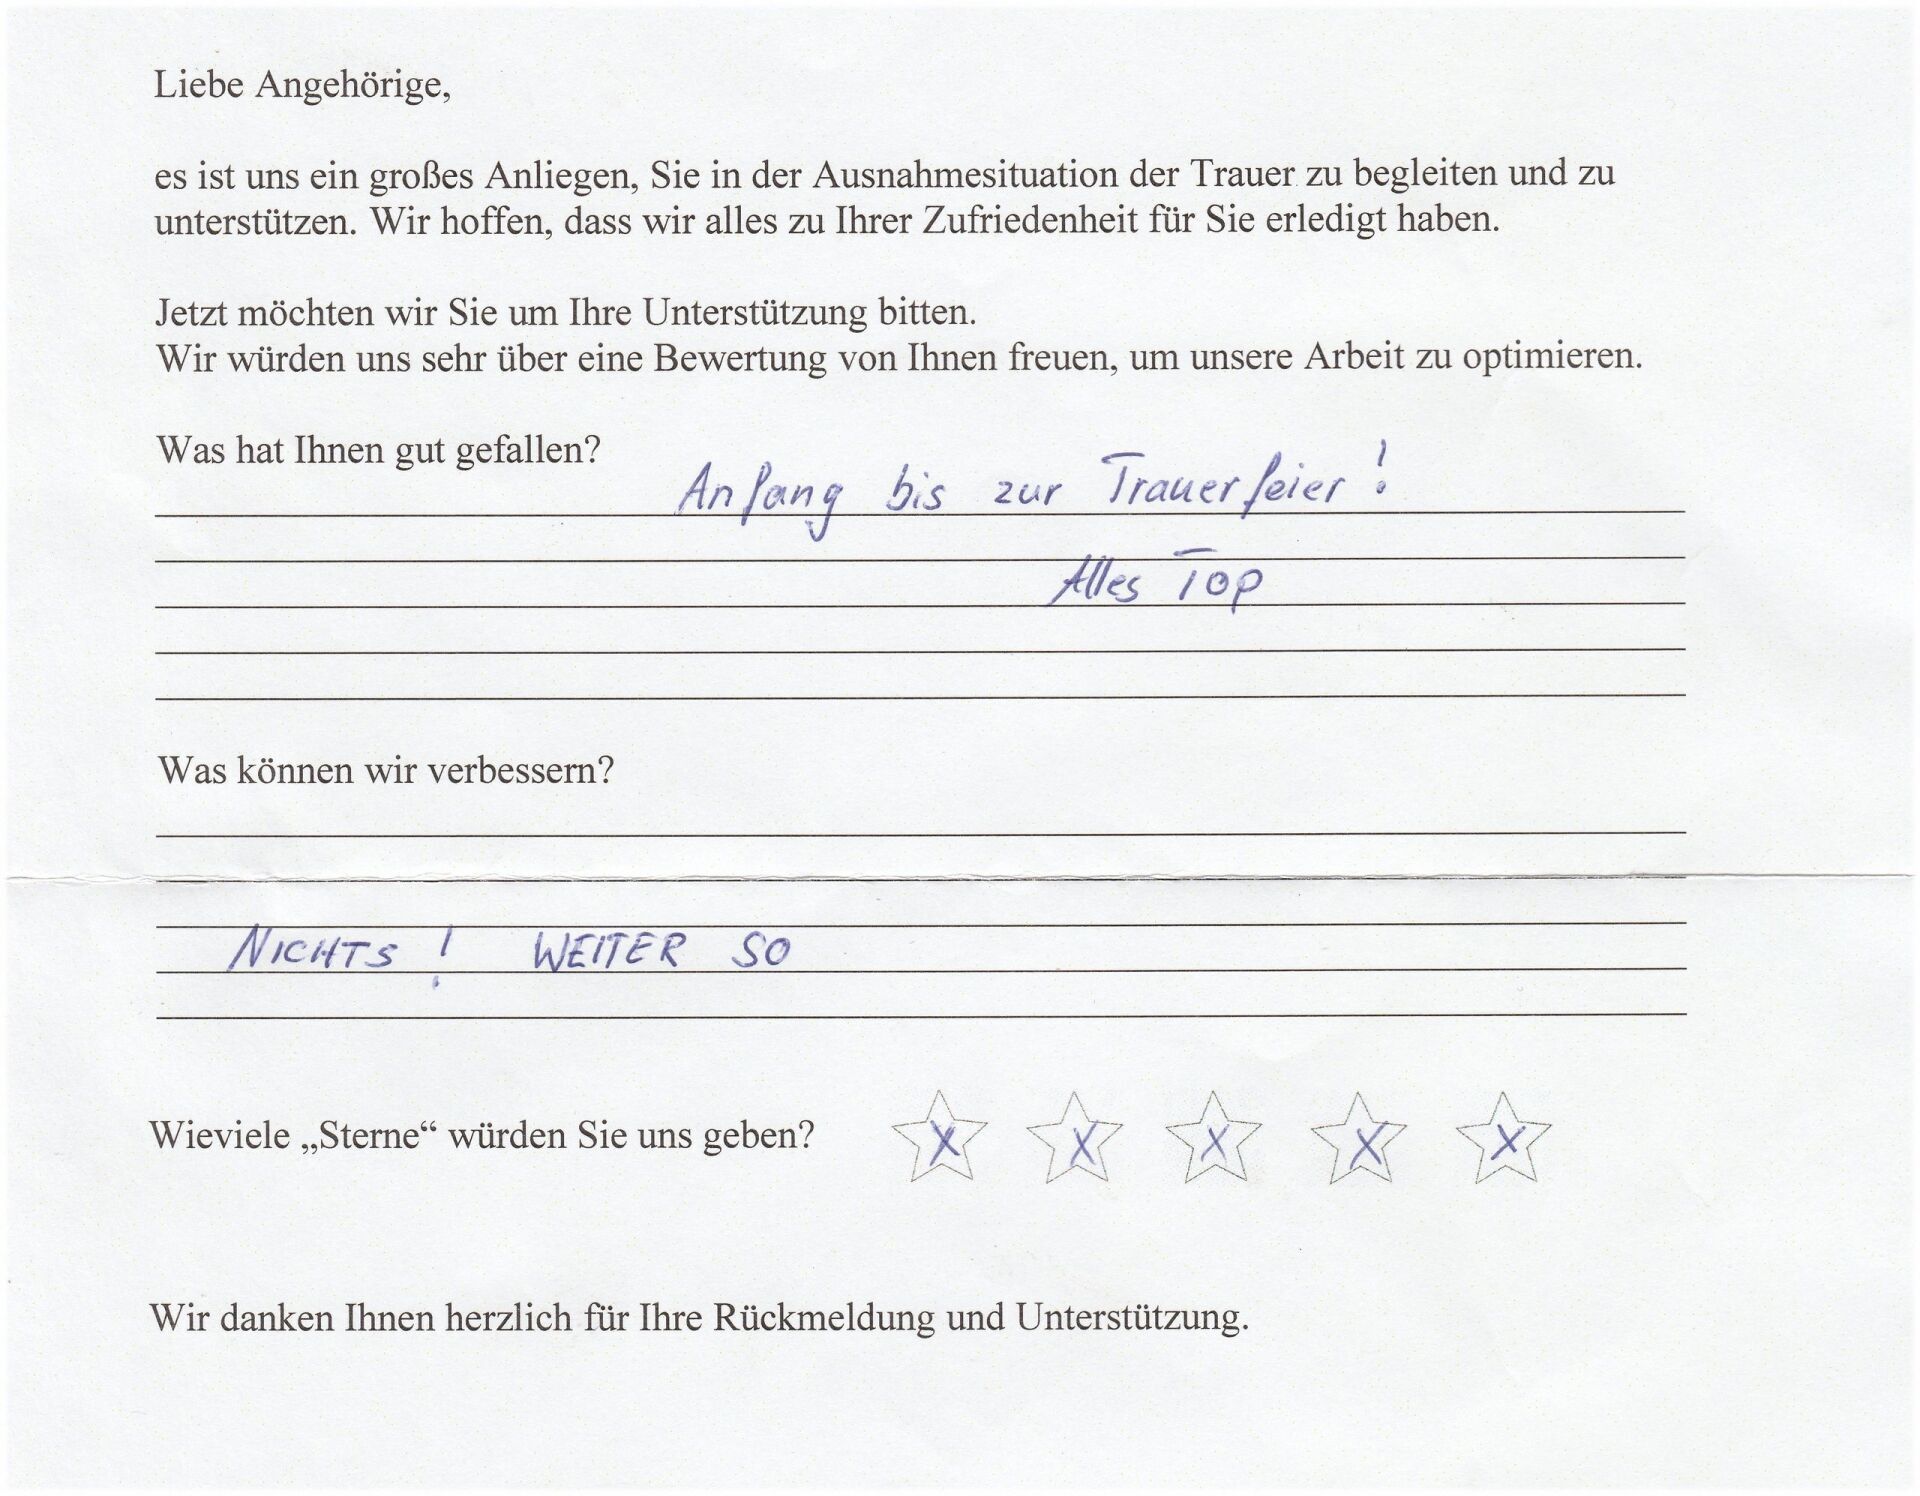 Liebe Angehörige,
es ist uns ein großes Anliegen, Sie in der Ausnahmesituation der Trauer zu begleiten und zu
unterstützen. Wir hoffen, dass wir alles zu Ihrer Zufriedenheit für Sie erledigt haben.
Jetzt möchten wir Sie um Ihre Unterstützung bitten.
Wir würden uns sehr über eine Bewertung von Ihnen freuen, um unsere Arbeit zu optimieren.
Was hat Ihnen gut gefallen?
Anfang bis zur Trauerfeier!
Alles Top
Was können wir verbessern?
NICHTS! WEITER SO
Wieviele „Sterne“ würden Sie uns geben? X X X X X
Wir danken Ihnen herzlich für Ihre Rückmeldung und Unterstützung.